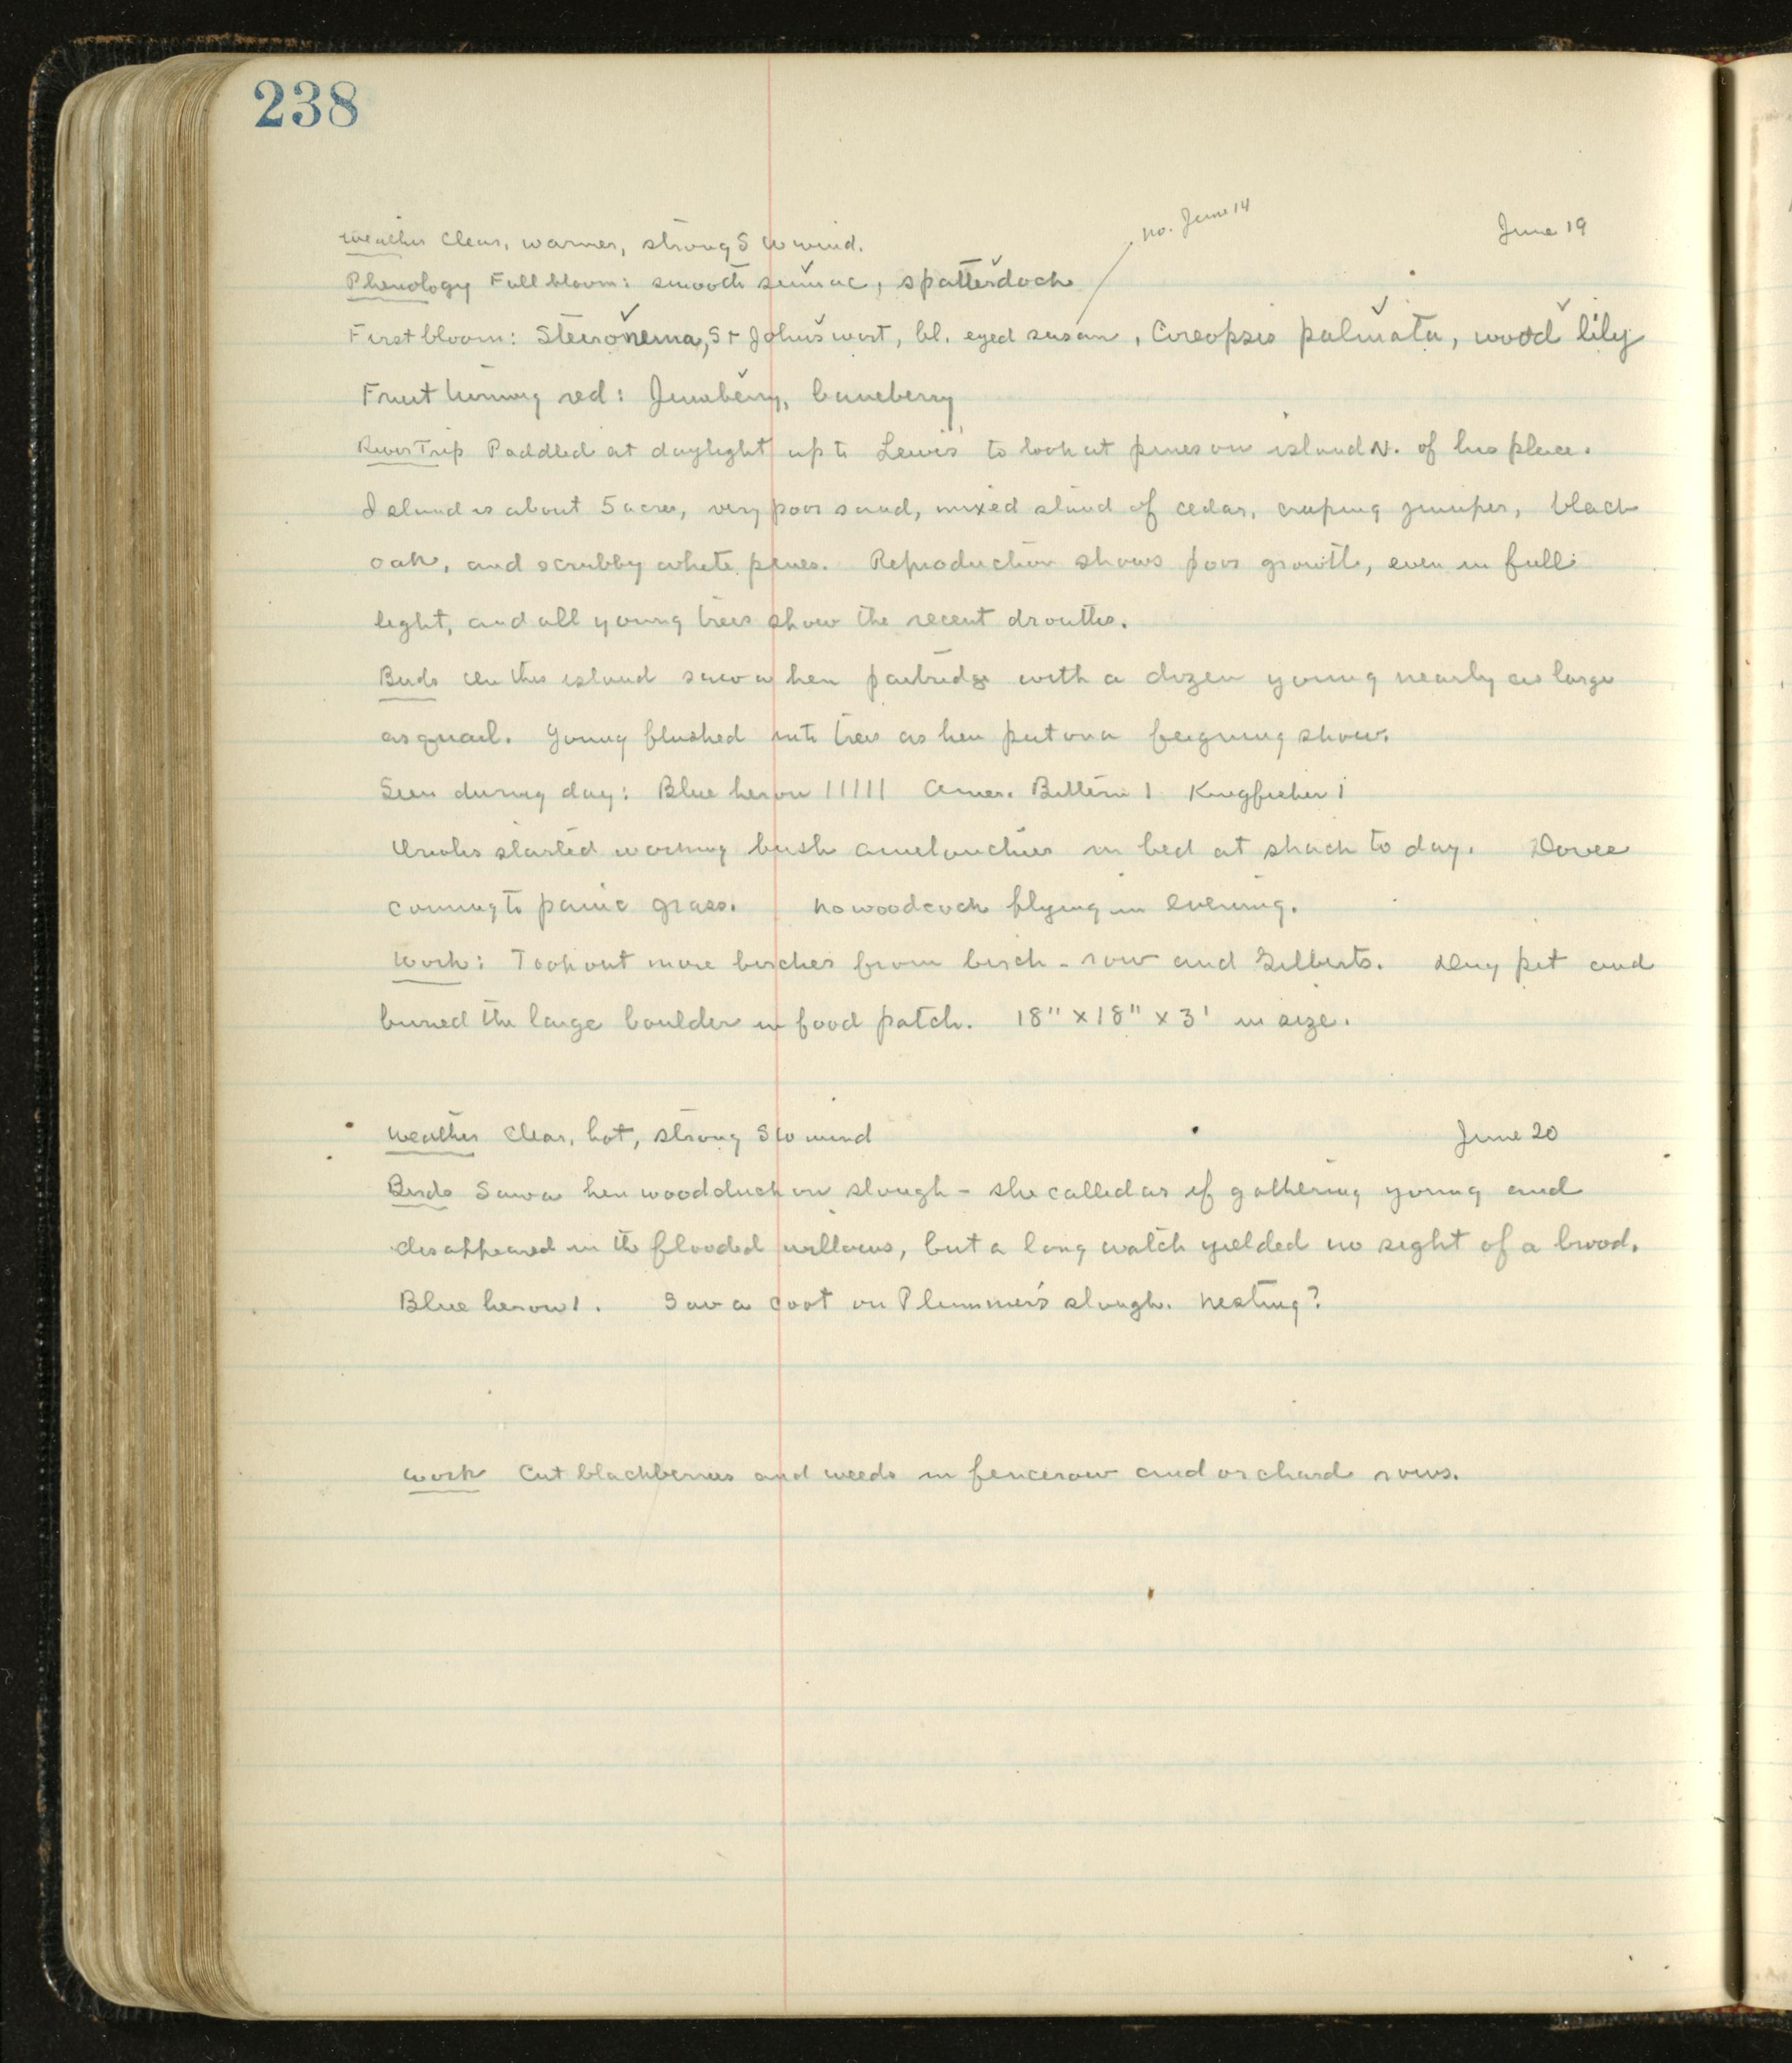 238
no. June 14
June 19
Weather Clear, warmer, strong SW wind.
Phenology Full bloom: smooth sumac, spatterdock
First bloom: Steironema, St Johnswort, bl. eyed susan, Coreopsis palmata, wood lily
Fruit turning red: Juneberry, baneberry
River Trip Paddled at daylight up to Lewis' to look at pines on island N. of his place.
Island is about 5 acres, very poor sand, mixed stand of cedar, creeping juniper, black
oak, and scrubby white pines. Reproduction shows poor growth, even in full
light, and all young trees show the recent drouths.
Birds On this island saw a hen partridge with a dozen young nearly as large
as quail. Young flushed into trees as hen put on a feigning show.
Seen during day: Blue heron 11111 Amer. Bittern 1 Kingfisher 1
Orioles started working bush amelanchier in bed at shack to day. Doves
coming to panic grass. No woodcock flying in evening.
Work: Took out more birches from birch-row and Gilberts. Dug pit and
buried the large boulder in food patch. 18" x 18" x 3' in size.
Weather Clear, hot, strong SW wind
June 20
Birds Saw a hen woodduck on slough - she called as if gathering young and
disappeared in the flooded willows, but a long watch yielded no sight of a brood.
Blue heron 1. Saw a coot on Plummer's slough. Nesting?
Work Cut blackberries and weeds in fencerow and orchard rows.